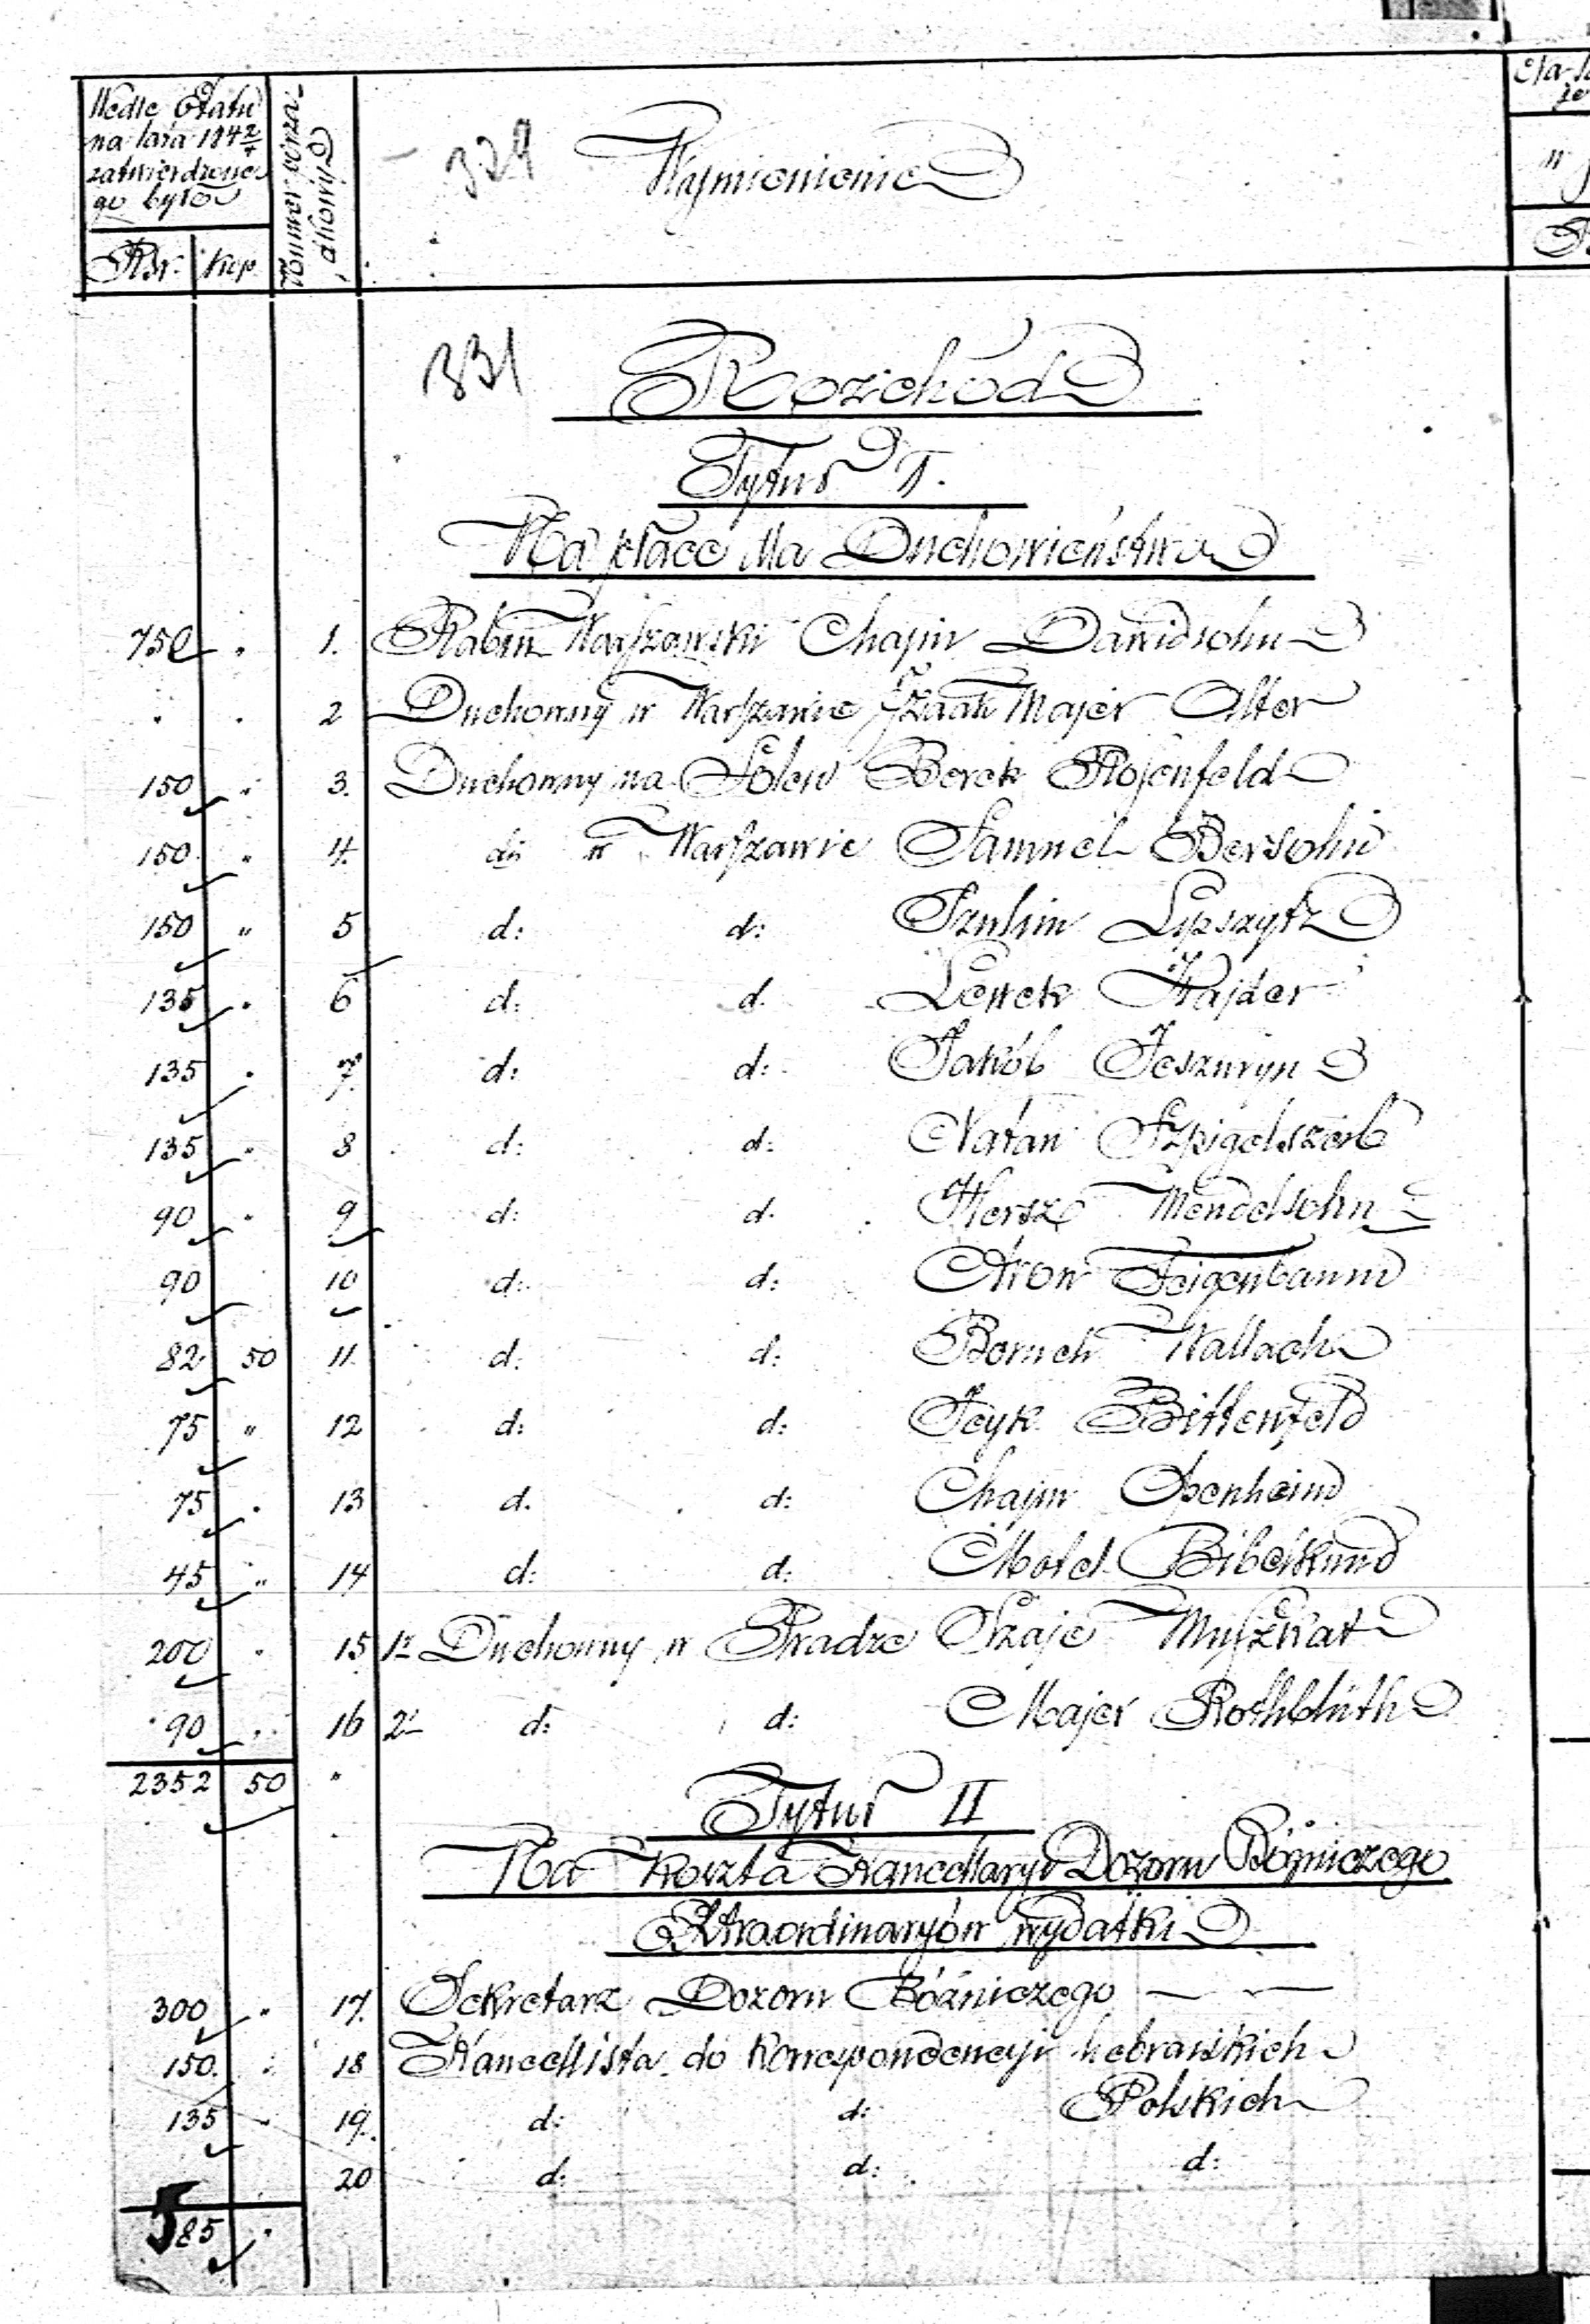 Wedle Etatu
na lata 184 2/4
zatwierdzone
go było
Rsr. kop.
329
Wymienienie
331
Rozchód
Tytuł I.
Na płace dla Duchowieństwa
750 " 1. Rabin Warszawski Chajm Dawidsohn
" " 2 Duchowny w Warszawie Izaak Majer Alter
150 " 3. Duchowny na Solcu Berek Rosenfeld
150 " 4. dū w Warszawie Samuel Bersohn
150 " 5 d: d: Szulim Lipszytz
135 " 6 d: d. Lewek Hajder
135 " 7. d: d: Jakób Jeszuryn
135 " 8 d: d: Natan Szpigelszerb
90 " 9 d: d. Hersz Mendelsohn
90 10 d: d: Aron Feigenbaum
82 50 11. d: d: Boruch Wallach
75 " 12 d: d: Icyk Bittenfeld
75 " 13 d. d: Chajm Openheim
45 " 14 d: d: Motel Bibelkund
200 " 15 1o Duchowny w Pradze Szaje Muszkat
90 " 16 2o d: d: Majer Rothblüth
2352 50 "
Tytuł II
Na Koszta Kancellaryi Dozoru Bóżniczego
Extraordinaryów wydatki
300 " 17. Sekretarz Dozoru Bóżniczego — —
150. " 18 Kancellista do Korrespondencyi hebrajskich
135 " 19. d: d: Polskich
20 d: d: d:
585 "